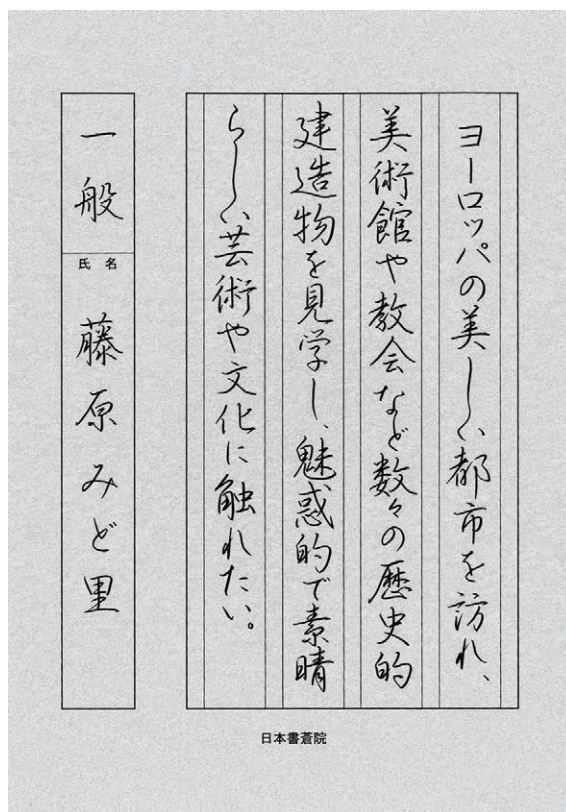 ヨーロッパの美しい都市を訪れ、
美術館や教会など数々の歴史的
建造物を見学し、魅惑的で素晴
らしい芸術や文化に触れたい。
一般
氏名
藤原みど里
日本書蒼院